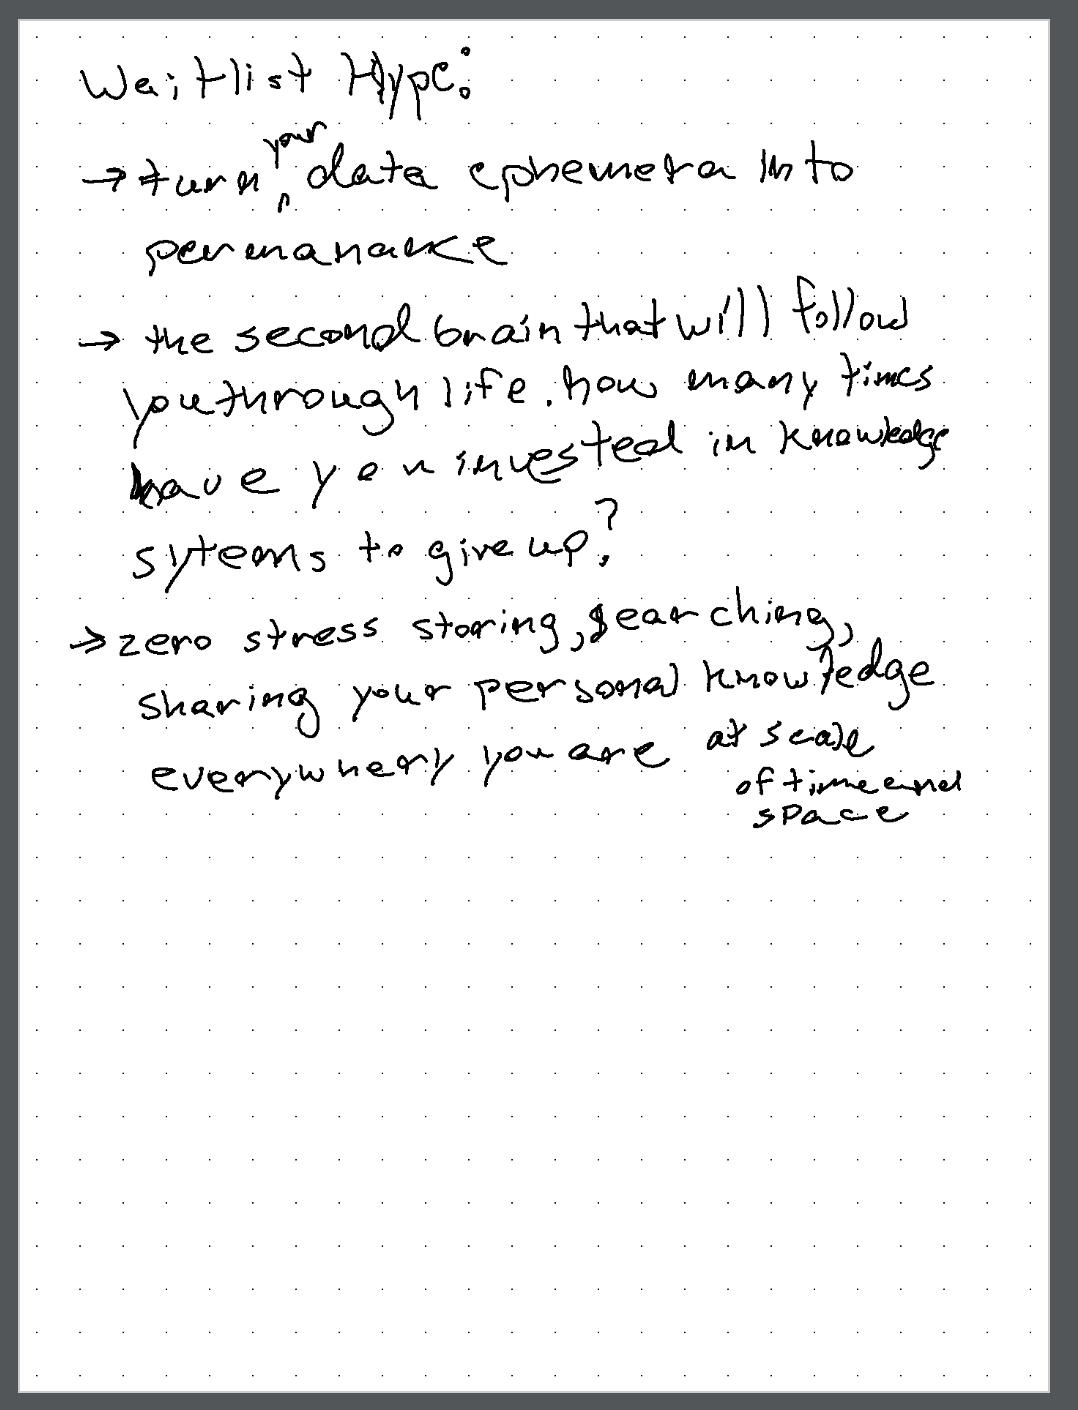 Waitlist Hype:
→ turn your data ephemera into
permanance
→ the second brain that will follow
you through life. how many times
have you invested in knowledge
sytems to give up?
→ zero stress storing, searching,
sharing your personal knowledge
everywhery you are at scale
of time and
space